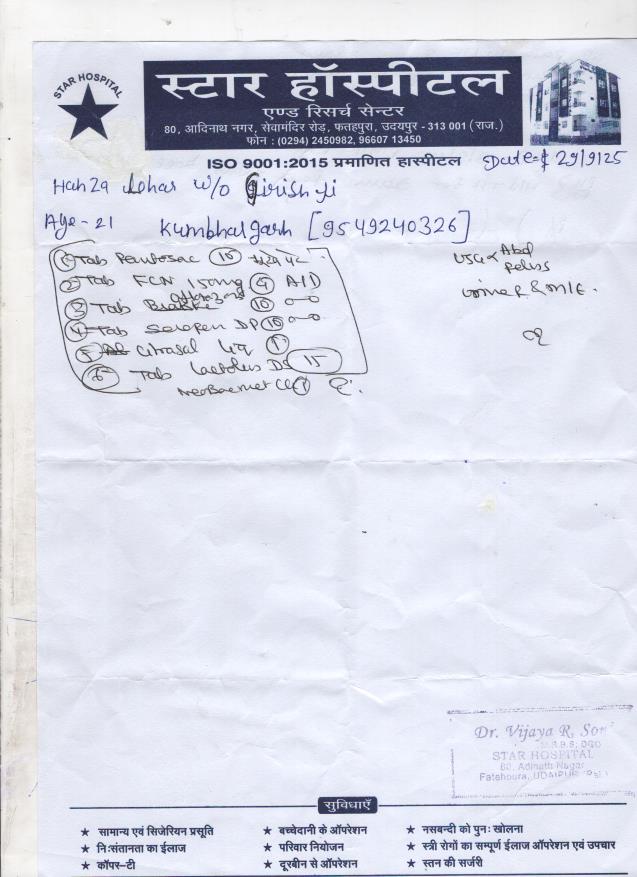 STAR HOSPITAL
स्टार हॉस्पीटल
एण्ड रिसर्च सेन्टर
80, आदिनाथ नगर, सेवामंदिर रोड़, फतहपुरा, उदयपुर - 313 001 (राज.)
फोन : (0294) 2450982, 96607 13450
ISO 9001:2015 प्रमाणित हास्पीटल
Date 29/9/25
w/o Girish ji
Age - 21 Kumbhalgarh [9549240326]
① Tab Pantosac ⑩
② Tab FCN 150mg A/D
③ Tab ⑩
④ Tab DP ⑩
⑤
⑥ Tab 15
USG Abd
Pelvis
Dr. Vijaya R.
M.B.B.S, DGO
STAR HOSPITAL
80, Adinath Nagar
Fatehpura, UDAIPUR
सुविधाएँ
★ सामान्य एवं सिजेरियन प्रसूति ★ बच्चेदानी के ऑपरेशन ★ नसबन्दी को पुनः खोलना
★ निःसंतानता का ईलाज ★ परिवार नियोजन ★ स्त्री रोगों का सम्पूर्ण ईलाज ऑपरेशन एवं उपचार
★ कॉपर-टी ★ दूरबीन से ऑपरेशन ★ स्तन की सर्जरी